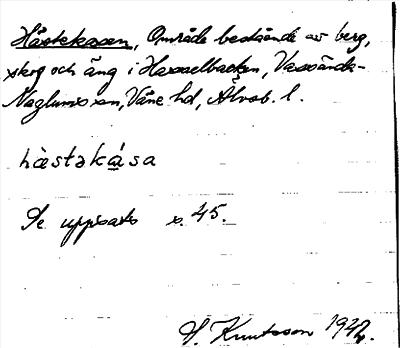 Hästekasen, Område bestående av berg,
skog och äng i Hasselbacken, Vassända-
Naglums sn, Väne hd, Älvsb. l.
hàstəkása
Se uppsats s. 45.
S. Knutsson 1942.